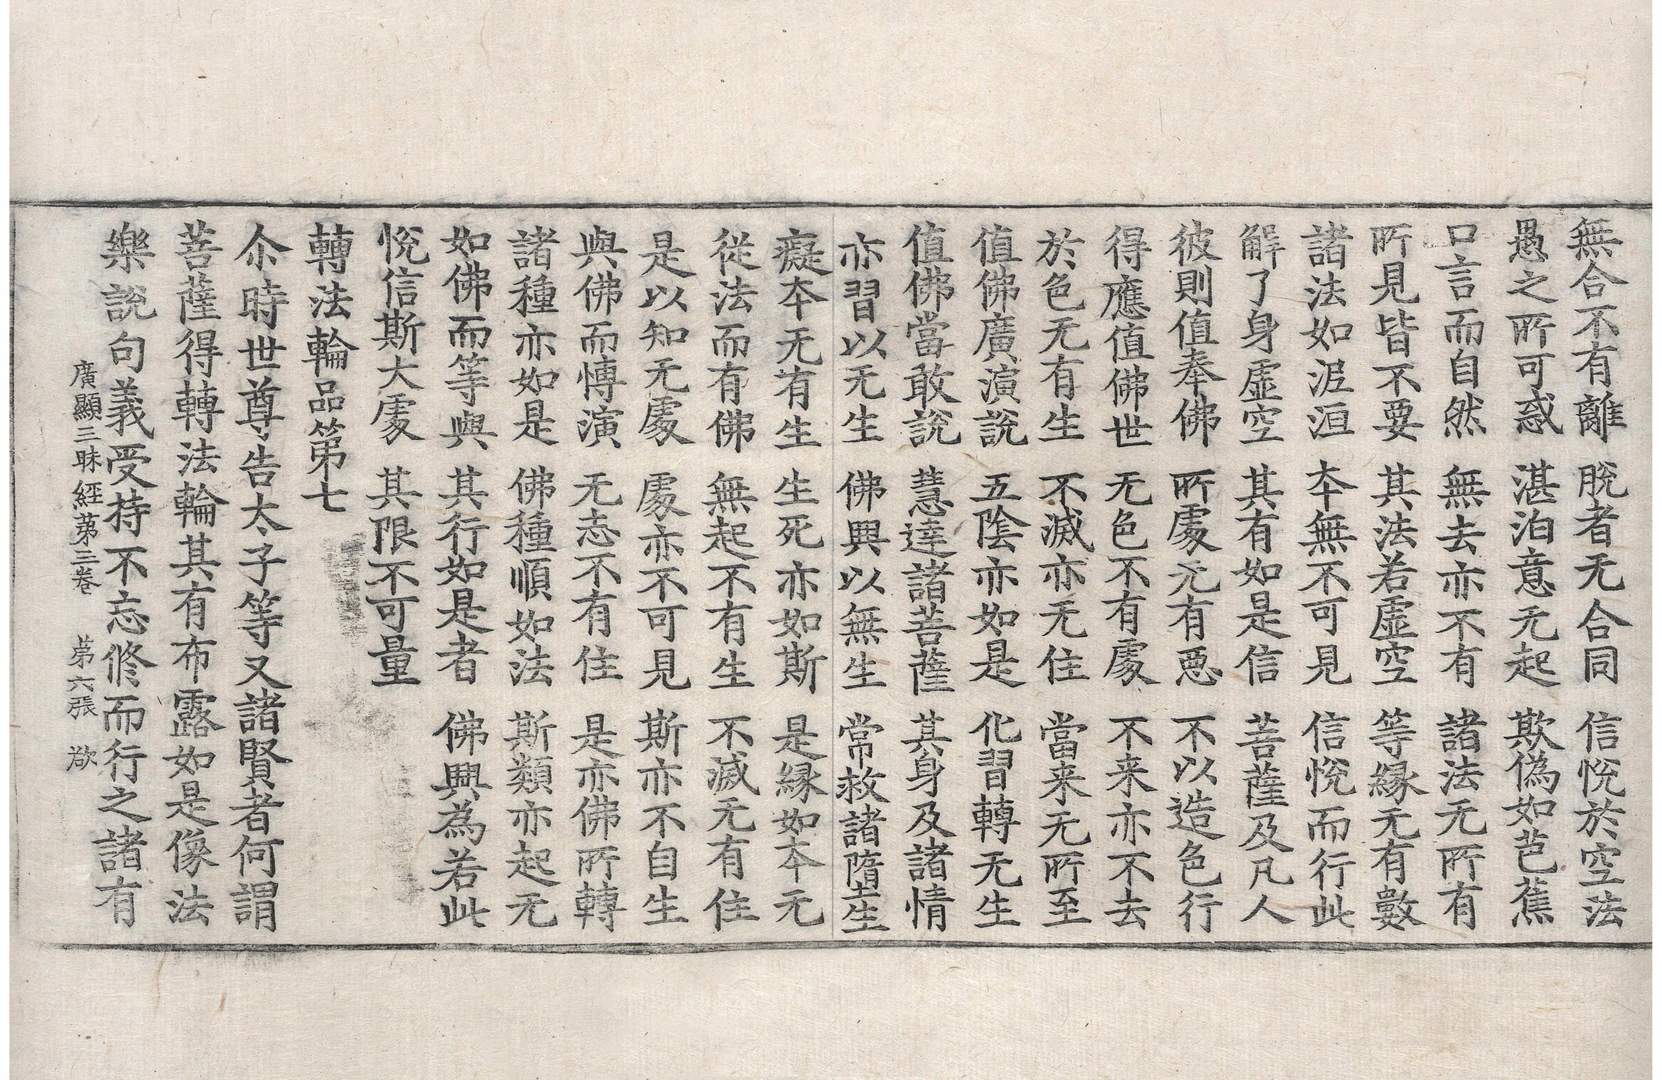 無合不有離　脫者无合同　信悅於空法
愚之所可惑　湛泊意无起　欺僞如芭蕉
口言而自然　無去亦不有　諸法无所有
所見皆不要　其法若虛空　等緣无有數
諸法如泥洹　夲無不可見　信悅而行此
解了身虛空　其有如是信　菩薩及凡人
彼則值奉佛　所處无有惡　不以造色行
得應值佛世　无色不有處　不来亦不去
於色无有生　不滅亦无住　當来无所至
值佛廣演說　五陰亦如是　化習轉无生
值佛當敢說　慧達諸菩薩　其身及諸情
亦習以无生　佛興以無生　常救諸墮生
癡夲无有生　生死亦如斯　是緣如夲无
從法而有佛　無起不有生　不滅无有住
是以知无處　處亦不可見　斯亦不自生
與佛而愽演　无志不有住　是亦佛所轉
諸種亦如是　佛種順如法　斯類亦起无
如佛而等與　其行如是者　佛興為若此
悅信斯大處　其限不可量
轉法輪品第七
尒時世尊告太子等又諸賢者何謂
菩薩得轉法輪其有布露如是像法
樂說句義受持不忘修而行之諸有
廣顯三昧經第三卷　第六張　欲